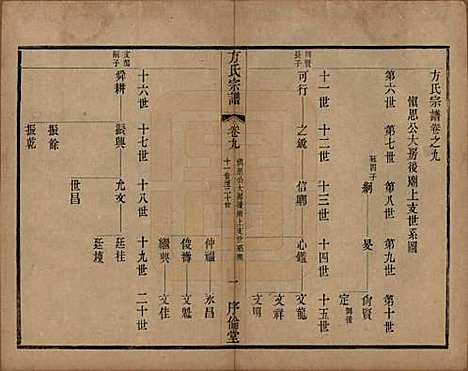 方氏宗譜卷之九
愼思公大房後廟上支世系圖
第六世 第七世 第八世 第九世 第十世
冠四子
綱 旻 尙賢
定 舞後
十一世 十二世 十三世 十四世 十五世
尙賢長子
可行 之鋭 信 心鑑 文龍
文祥
文明
方氏宗譜 卷九 愼思公大房後廟上支世系圖 十一世至二十世 一 序倫堂
仲福 永昌
俊 文魁
繼興 文佳
十六世 十七世 十八世 十九世 二十世
嗣子
舜耕 振興 允文 廷桂
廷
世昌
振餘
振乾